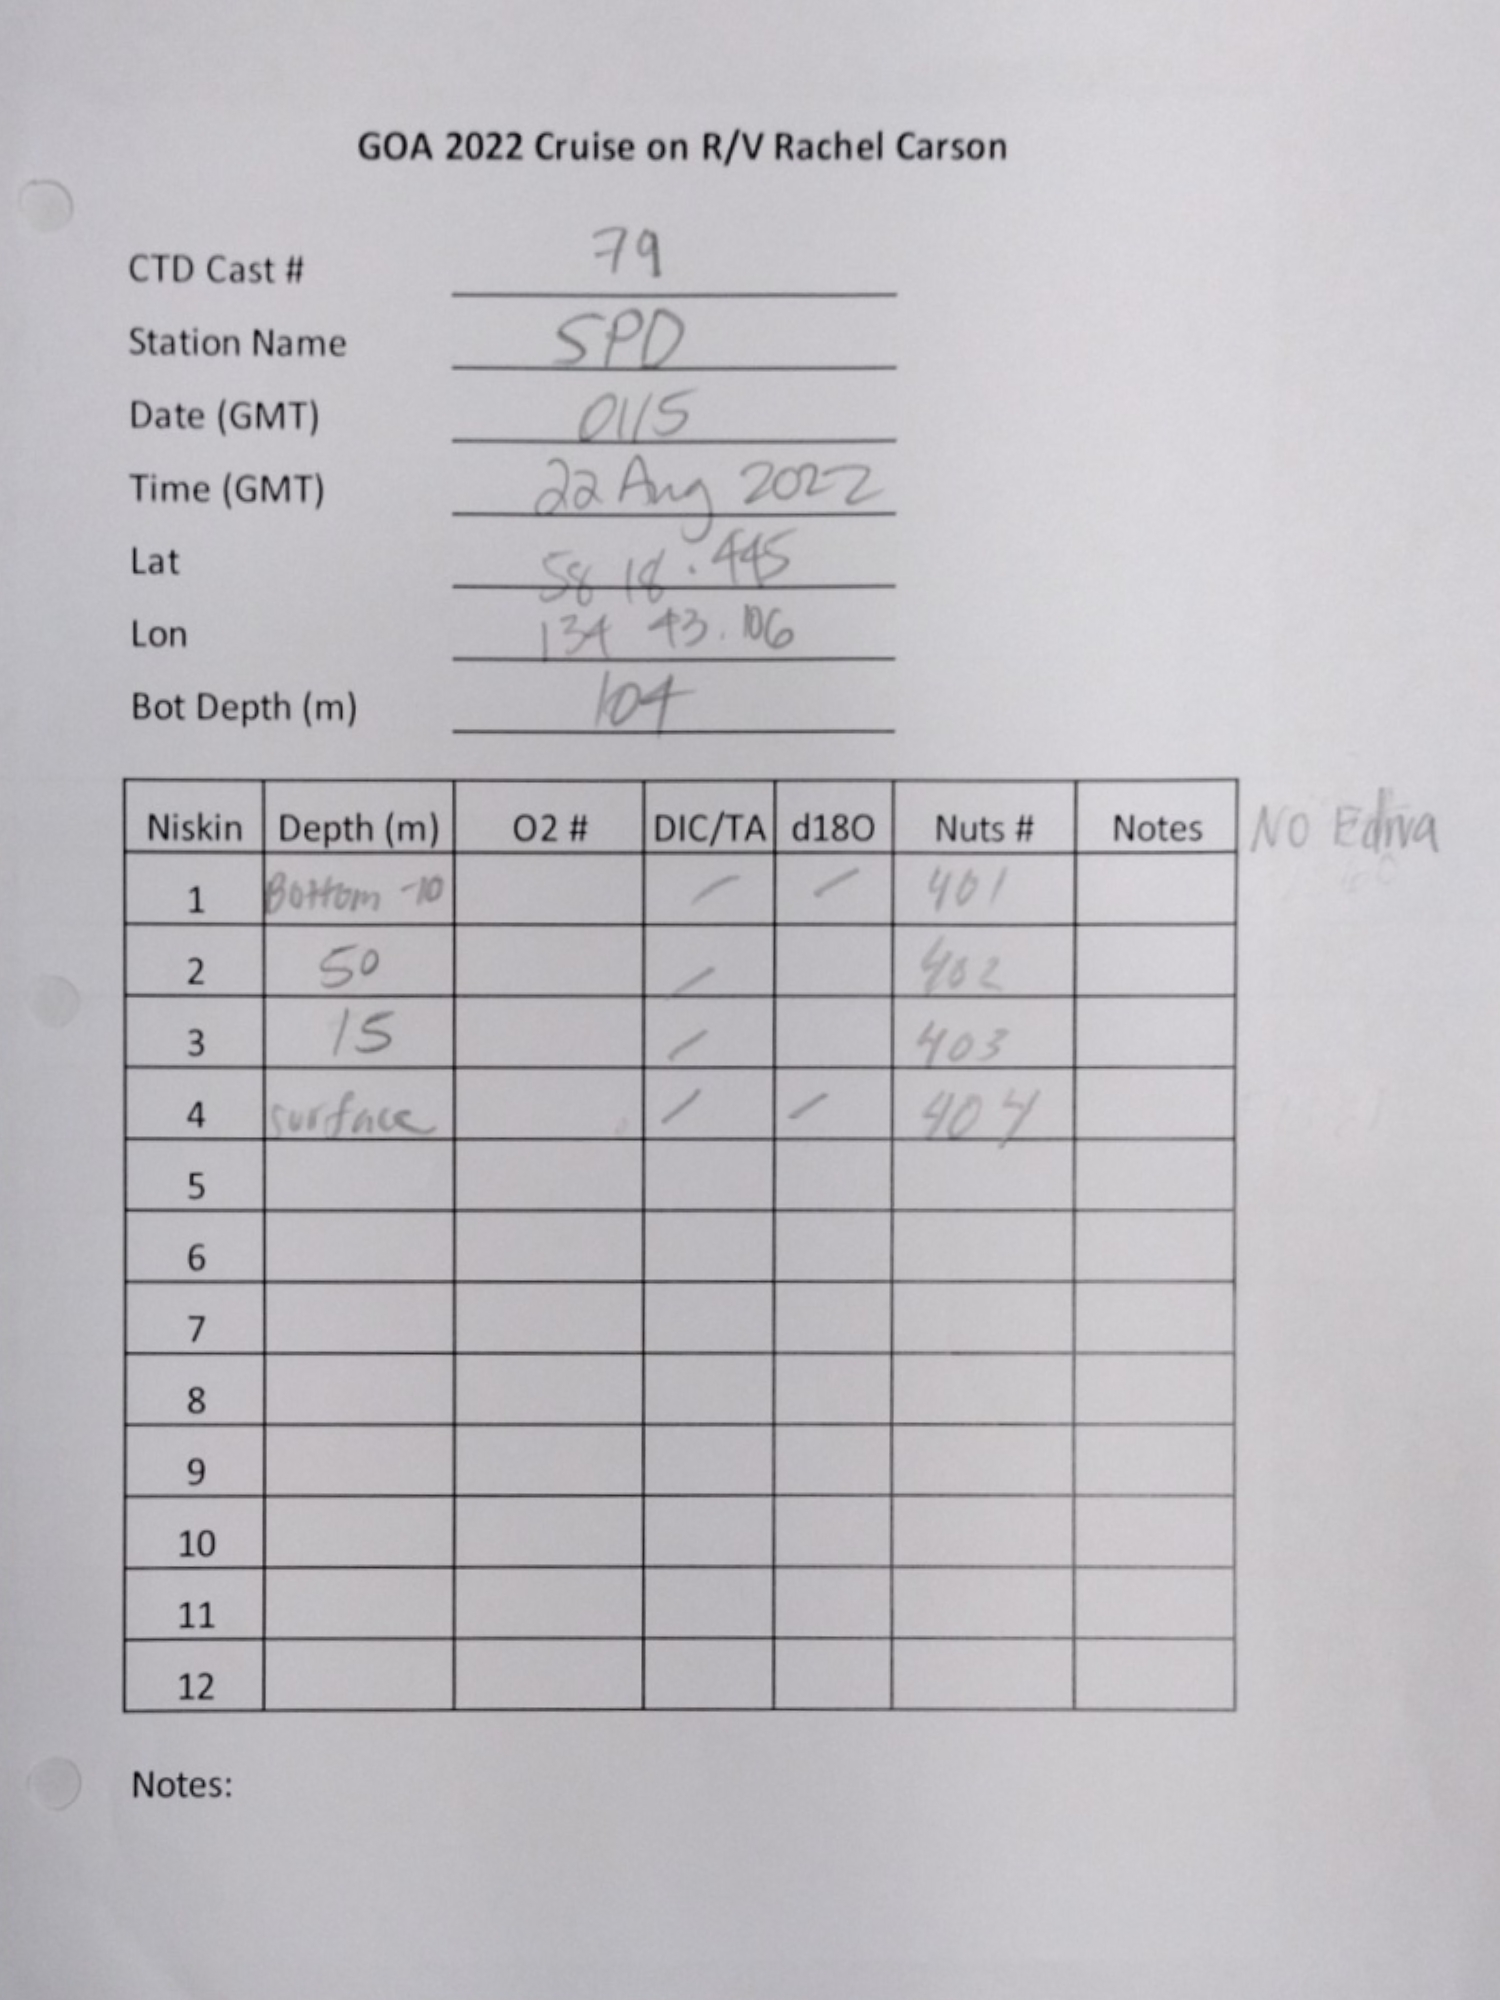 GOA 2022 Cruise on R/V Rachel Carson
CTD Cast # 79
Station Name SPD
Date (GMT) 0115
Time (GMT) 22 Aug 2022
Lat 58 18.445
Lon 134 43.106
Bot Depth (m) 104
Niskin Depth (m) O2 # DIC/TA d18O Nuts # Notes NO
1 Bottom -10 / / 401
2 50 / 402
3 15 / 403
4 surface / / 404
5
6
7
8
9
10
11
12
Notes: